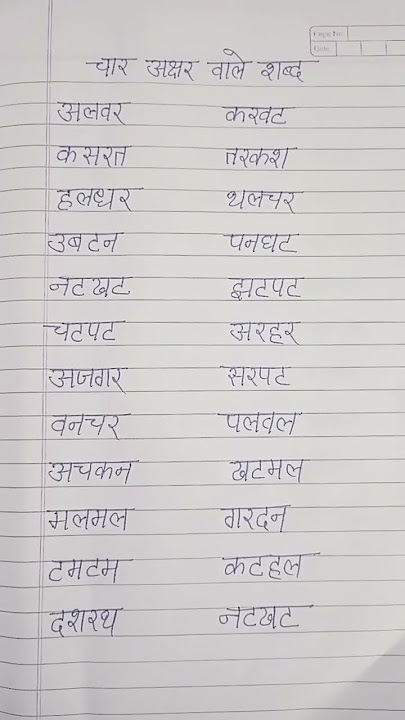 Page No.
Date
चार अक्षर वाले शब्द
अलवर करवट
कसरत तरकश
हलधर थलचर
उबटन पनघट
नटखट झटपट
चटपट अरहर
अजगर सरपट
वनचर पलवल
अचकन खटमल
मलमल गरदन
टमटम कटहल
दशरथ नटखट